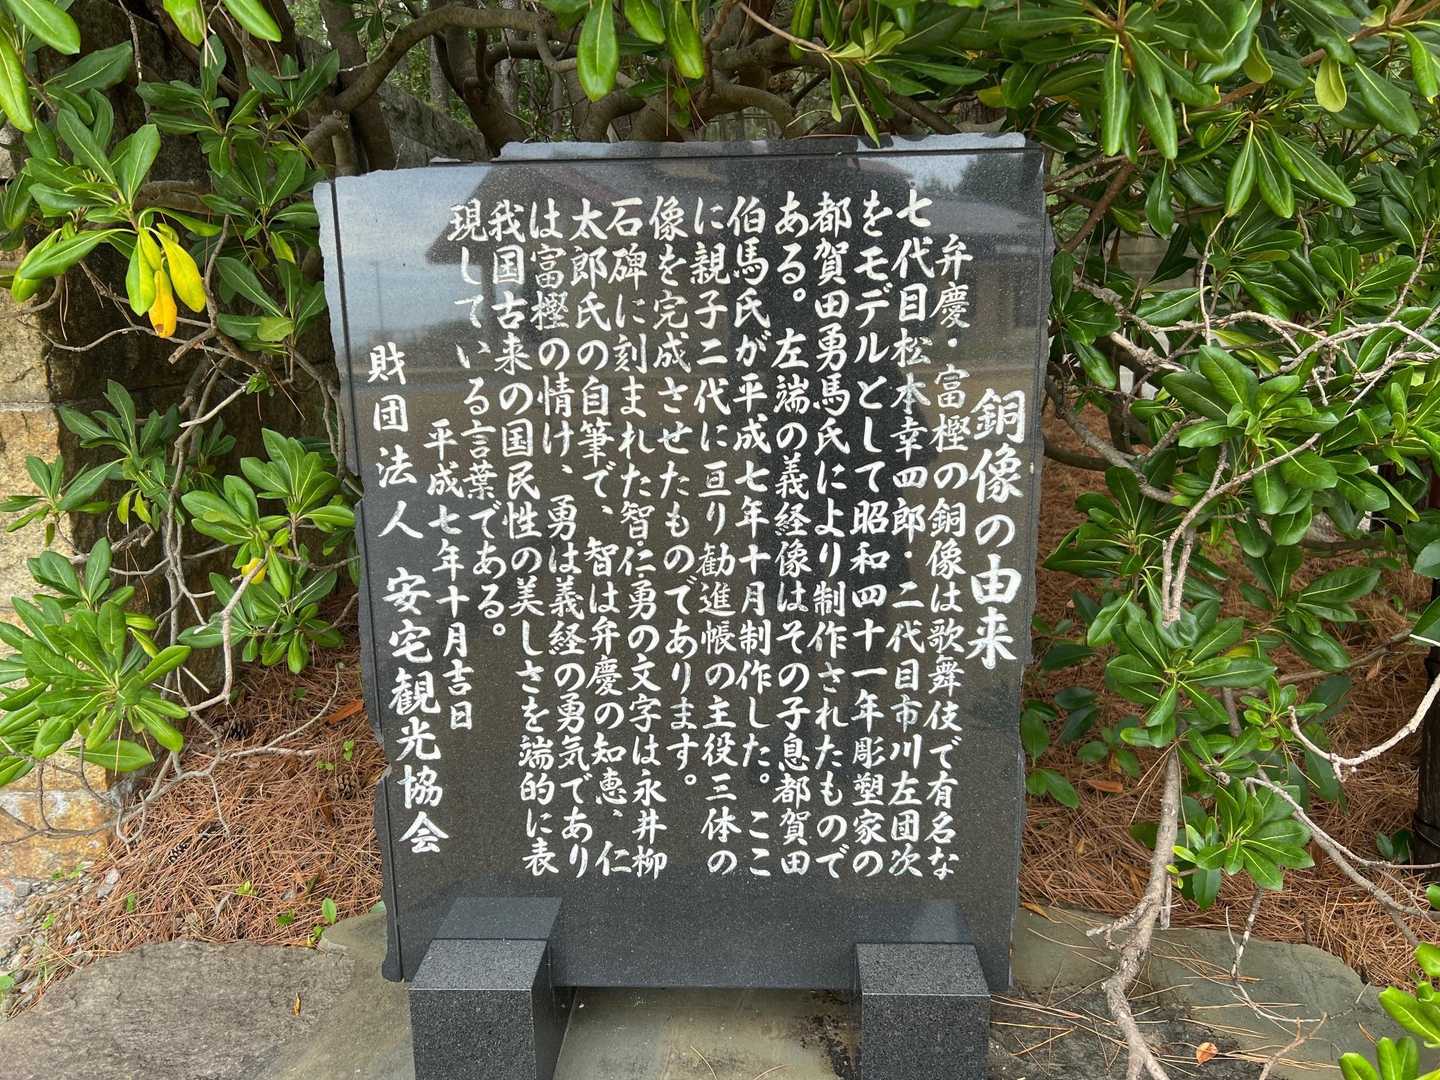 銅像の由来
弁慶・富樫の銅像は歌舞伎で有名な
七代目松本幸四郎・二代目市川左団次
をモデルとして昭和四十一年彫塑家の
都賀田勇馬氏により制作されたもので
ある。左端の義経像はその子息都賀田
伯馬氏が平成七年十月制作した。ここ
に親子二代に亘り勧進帳の主役三体の
像を完成させたものであります。
石碑に刻まれた智・仁・勇の文字は永井柳
太郎氏の自筆で、智は弁慶の知恵、仁
は富樫の情け、勇は義経の勇気であり
我国古来の国民性の美しさを端的に表
現している言葉である。
平成七年十月吉日
財団法人 安宅観光協会